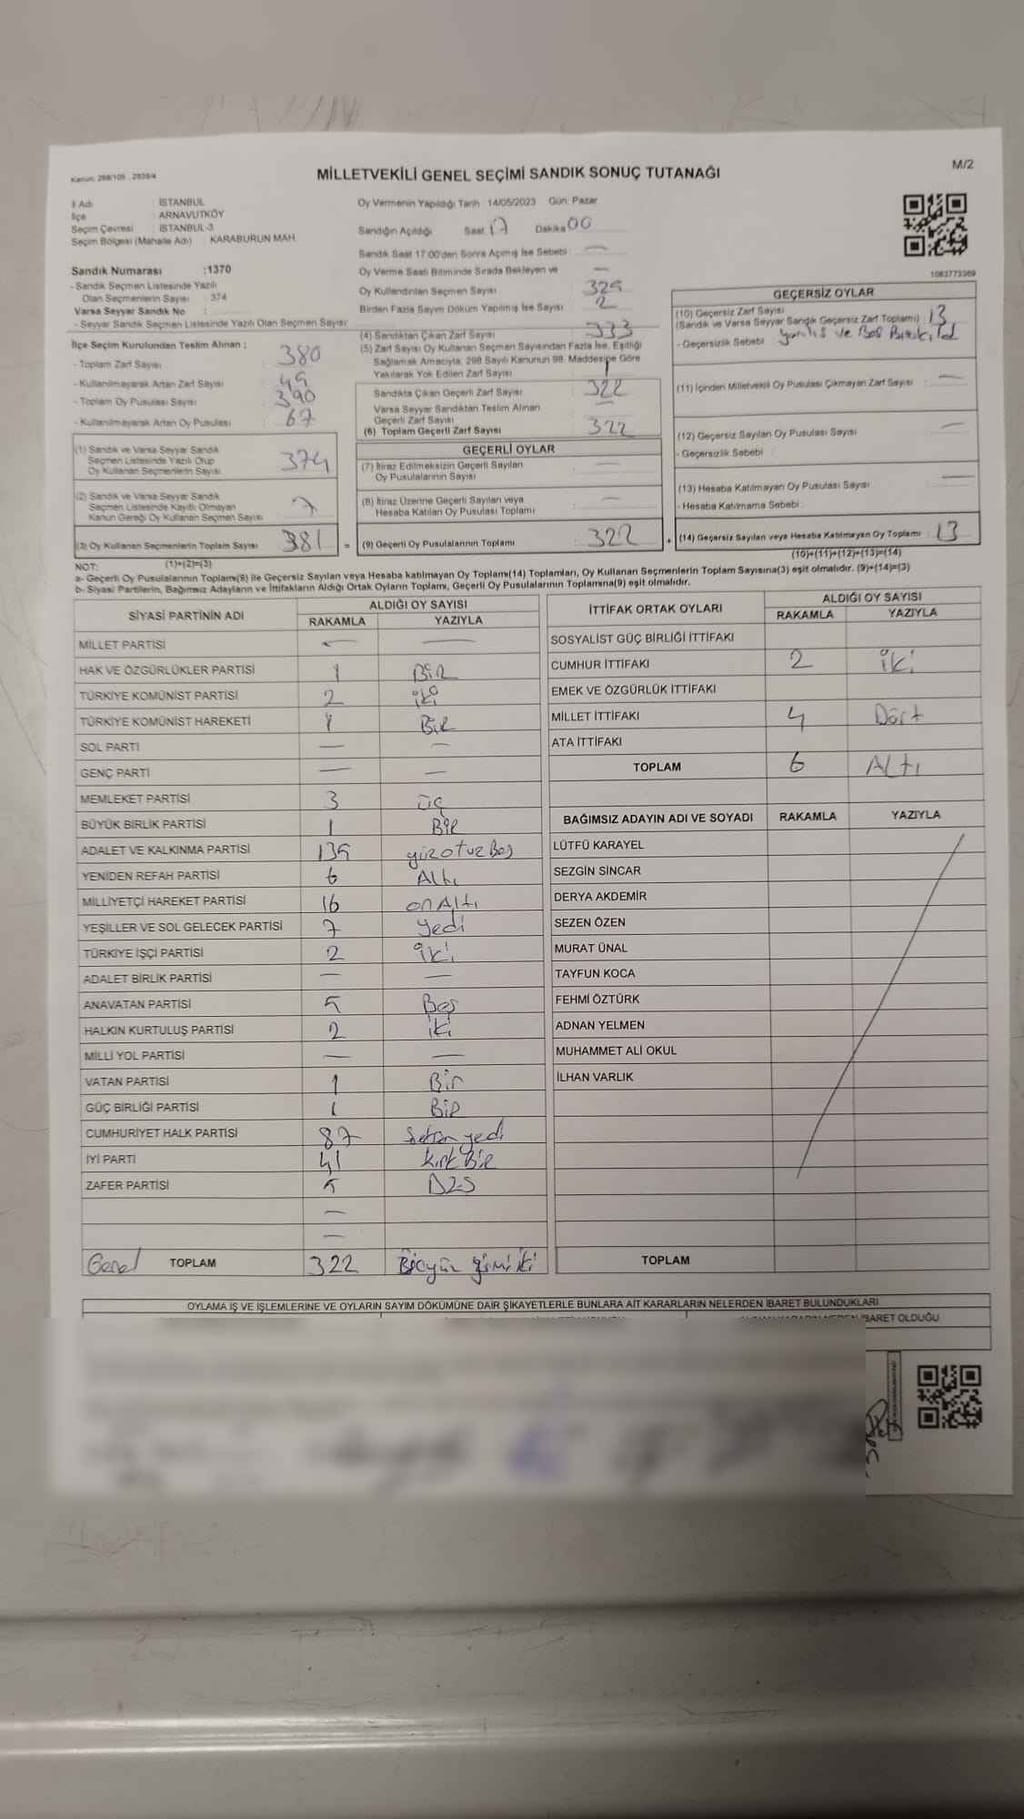 Kanun: 298/105 , 2839/4
MİLLETVEKİLİ GENEL SEÇİMİ SANDIK SONUÇ TUTANAĞI
M/2
İl Adı İSTANBUL
İlçe ARNAVUTKÖY
Seçim Çevresi İSTANBUL-3
Seçim Bölgesi (Mahalle Adı) KARABURUN MAH.
Sandık Numarası :1370
- Sandık Seçmen Listesinde Yazılı
Olan Seçmenlerin Sayısı : 374
Varsa Seyyar Sandık No :
- Seyyar Sandık Seçmen Listesinde Yazılı Olan Seçmen Sayısı:
İlçe Seçim Kurulundan Teslim Alınan :
- Toplam Zarf Sayısı 380
- Kullanılmayarak Artan Zarf Sayısı 49
- Toplam Oy Pusulası Sayısı 390
- Kullanılmayarak Artan Oy Pusulası 67
(1) Sandık ve Varsa Seyyar Sandık
Seçmen Listesinde Yazılı Olup
Oy Kullanan Seçmenlerin Sayısı 374
(2) Sandık ve Varsa Seyyar Sandık
Seçmen Listesinde Kayıtlı Olmayan
Kanun Gereği Oy Kullanan Seçmen Sayısı 7
(3) Oy Kullanan Seçmenlerin Toplam Sayısı 381 =
(1)+(2)=(3)
Oy Vermenin Yapıldığı Tarih 14/05/2023 Gün: Pazar
Sandığın Açıldığı Saat 17 Dakika 00
Sandık Saat 17:00'den Sonra Açılmış İse Sebebi : —
Oy Verme Saati Bitiminde Sırada Bekleyen ve —
Oy Kullandırılan Seçmen Sayısı 329
Birden Fazla Sayım Döküm Yapılmış İse Sayısı 2
(4) Sandıktan Çıkan Zarf Sayısı 333
(5) Zarf Sayısı Oy Kullanan Seçmen Sayısından Fazla İse, Eşitliği
Sağlamak Amacıyla, 298 Sayılı Kanunun 98. Maddesine Göre
Yakılarak Yok Edilen Zarf Sayısı 1
Sandıkta Çıkan Geçerli Zarf Sayısı 322
Varsa Seyyar Sandıktan Teslim Alınan
Geçerli Zarf Sayısı —
(6) Toplam Geçerli Zarf Sayısı 322
GEÇERLİ OYLAR
(7) İtiraz Edilmeksizin Geçerli Sayılan
Oy Pusulalarının Sayısı —
(8) İtiraz Üzerine Geçerli Sayılan veya
Hesaba Katılan Oy Pusulası Toplamı —
(9) Geçerli Oy Pusulalarının Toplamı 322 +
1083773369
GEÇERSİZ OYLAR
(10) Geçersiz Zarf Sayısı
(Sandık ve Varsa Seyyar Sandık Geçersiz Zarf Toplamı) 13
- Geçersizlik Sebebi : yanlış ve Boş
(11) İçinden Milletvekili Oy Pusulası Çıkmayan Zarf Sayısı —
(12) Geçersiz Sayılan Oy Pusulası Sayısı —
- Geçersizlik Sebebi :
(13) Hesaba Katılmayan Oy Pusulası Sayısı —
- Hesaba Katılmama Sebebi :
(14) Geçersiz Sayılan veya Hesaba Katılmayan Oy Toplamı 13
(10)+(11)+(12)+(13)=(14)
NOT:
a- Geçerli Oy Pusulalarının Toplamı(9) ile Geçersiz Sayılan veya Hesaba katılmayan Oy Toplamı(14) Toplamları, Oy Kullanan Seçmenlerin Toplam Sayısına(3) eşit olmalıdır. (9)+(14)=(3)
b- Siyasi Partilerin, Bağımsız Adayların ve İttifakların Aldığı Ortak Oyların Toplamı, Geçerli Oy Pusulalarının Toplamına(9) eşit olmalıdır.
SİYASİ PARTİNİN ADI ALDIĞI OY SAYISI
RAKAMLA YAZIYLA
MİLLET PARTİSİ — —
HAK VE ÖZGÜRLÜKLER PARTİSİ 1 Bir
TÜRKİYE KOMÜNİST PARTİSİ 2 iki
TÜRKİYE KOMÜNİST HAREKETİ 1 Bir
SOL PARTİ — —
GENÇ PARTİ — —
MEMLEKET PARTİSİ 3 üç
BÜYÜK BİRLİK PARTİSİ 1 Bir
ADALET VE KALKINMA PARTİSİ 135 yüzotuzBeş
YENİDEN REFAH PARTİSİ 6 Altı
MİLLİYETÇİ HAREKET PARTİSİ 16 onAltı
YEŞİLLER VE SOL GELECEK PARTİSİ 7 yedi
TÜRKİYE İŞÇİ PARTİSİ 2 iki
ADALET BİRLİK PARTİSİ — —
ANAVATAN PARTİSİ 5 Beş
HALKIN KURTULUŞ PARTİSİ 2 iki
MİLLİ YOL PARTİSİ — —
VATAN PARTİSİ 1 Bir
GÜÇ BİRLİĞİ PARTİSİ 1 Bir
CUMHURİYET HALK PARTİSİ 87 Seksen yedi
İYİ PARTİ 41 kırk Bir
ZAFER PARTİSİ 5
—
—
Genel TOPLAM 322
İTTİFAK ORTAK OYLARI ALDIĞI OY SAYISI
RAKAMLA YAZIYLA
SOSYALİST GÜÇ BİRLİĞİ İTTİFAKI
CUMHUR İTTİFAKI 2 iki
EMEK VE ÖZGÜRLÜK İTTİFAKI
MİLLET İTTİFAKI 4 Dört
ATA İTTİFAKI
TOPLAM 6 Altı
BAĞIMSIZ ADAYIN ADI VE SOYADI RAKAMLA YAZIYLA
LÜTFÜ KARAYEL
SEZGİN SİNCAR
DERYA AKDEMİR
SEZEN ÖZEN
MURAT ÜNAL
TAYFUN KOCA
FEHMİ ÖZTÜRK
ADNAN YELMEN
MUHAMMET ALİ OKUL
İLHAN VARLIK
TOPLAM
OYLAMA İŞ VE İŞLEMLERİNE VE OYLARIN SAYIM DÖKÜMÜNE DAİR ŞİKAYETLERLE BUNLARA AİT KARARLARIN NELERDEN İBARET BULUNDUKLARI
İBARET OLDUĞU